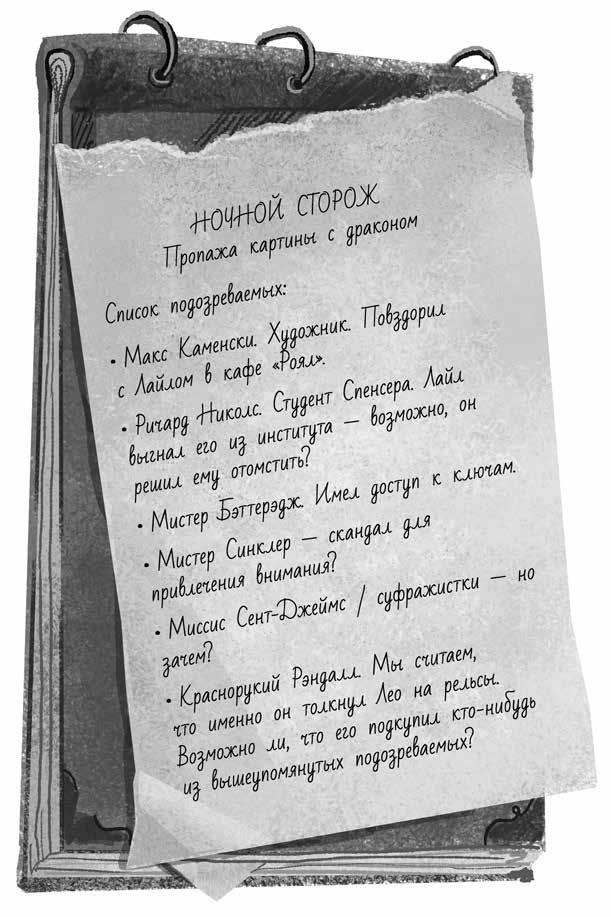 НОЧНОЙ СТОРОЖ
Пропажа картины с драконом
Список подозреваемых:
• Макс Каменски. Художник. Повздорил
с Лайлом в кафе «Роял».
• Ричард Николс. Студент Спенсера. Лайл
выгнал его из института — возможно, он
решил ему отомстить?
• Мистер Бэттерэдж. Имел доступ к ключам.
• Мистер Синклер — скандал для
привлечения внимания?
• Миссис Сент-Джеймс / суфражистки — но
зачем?
• Краснорукий Рэндалл. Мы считаем,
что именно он толкнул Лео на рельсы.
Возможно ли, что его подкупил кто-нибудь
из вышеупомянутых подозреваемых?